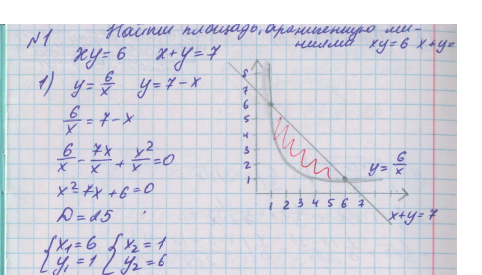 №1 Найти площадь, ограниченную ли-
ниями xy=6 x+y=
xy=6 x+y=7
1) y=6/x y=7-x
6/x=7-x
6/x-7x/x+x²/x=0
x²-7x+6=0
D=25
{x₁=6 {x₂=1
y₁=1 y₂=6
8
7
6
5
4
3
2
1
1 2 3 4 5 6 7
y=6/x
x+y=7